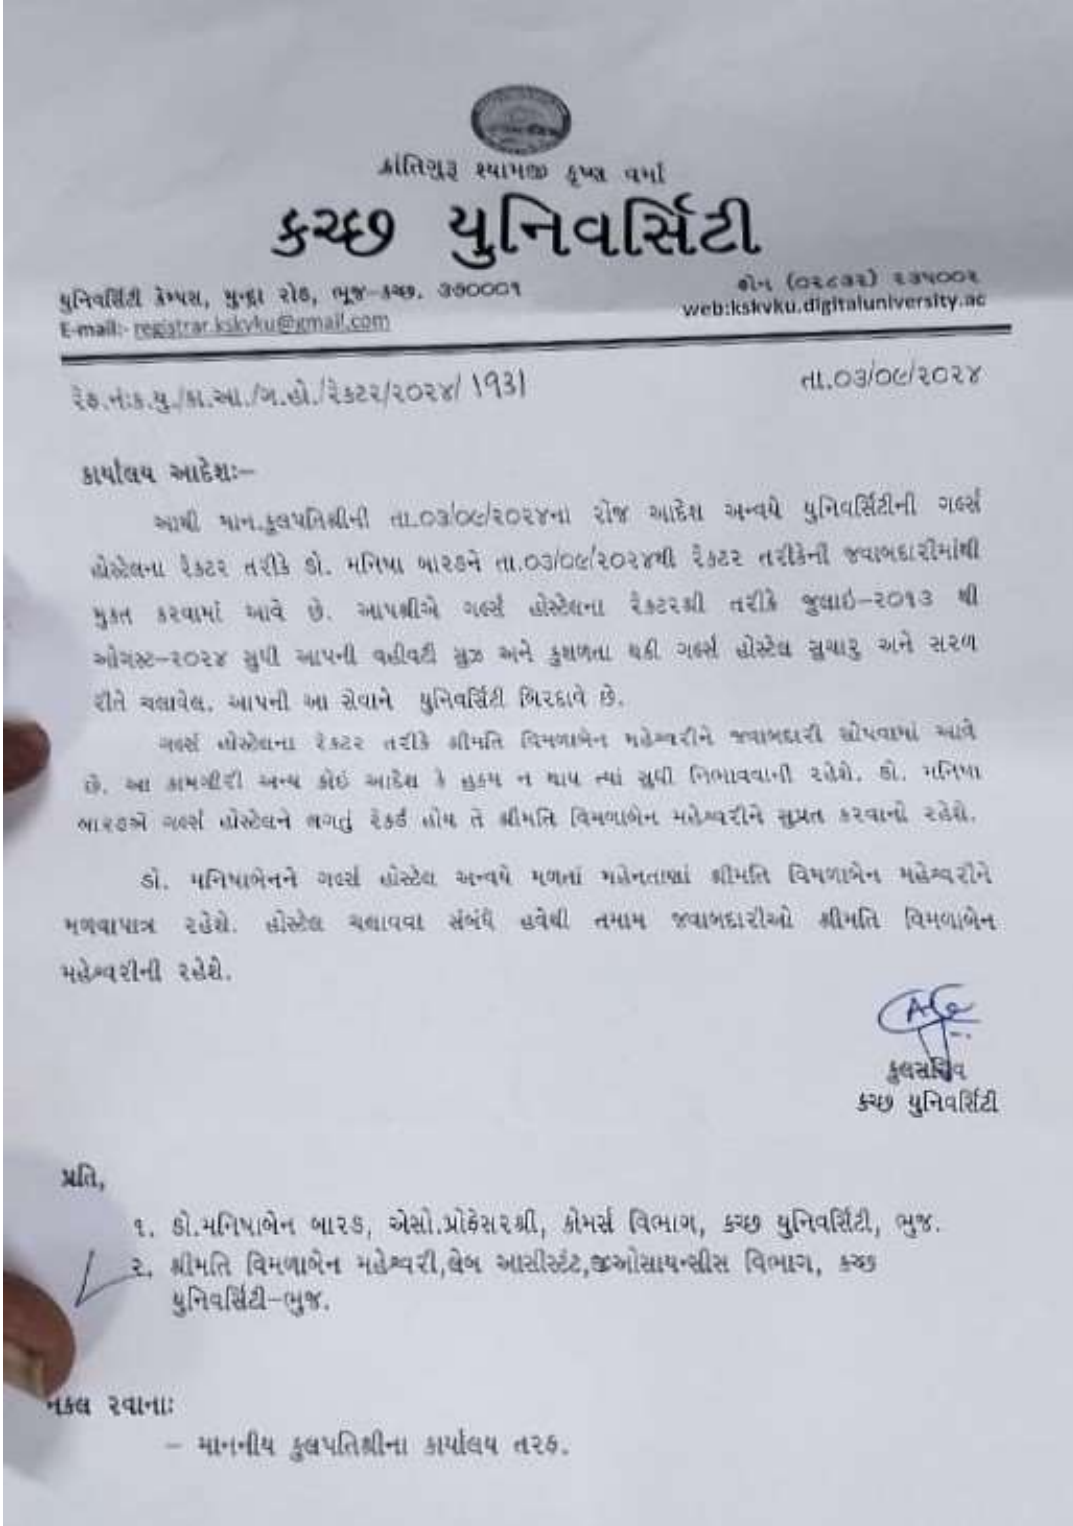 ક્રાંતિગુરૂ શ્યામજી કૃષ્ણ વર્મા
કચ્છ યુનિવર્સિટી
યુનિવર્સિટી કેમ્પસ, મુન્દ્રા રોડ, ભૂજ-કચ્છ. ૩૭૦૦૦૧
ફોન (૦૨૮૩૨) ૨૩૫૦૦૨
E-mail:- registrar.kskvku@gmail.com
web:kskvku.digitaluniversity.ac
રેફ.નં:ક.યુ./કા.આ./ગ.હો./રેકટર/૨૦૨૪/ ૧૯૩૧
તા.૦૩/૦૯/૨૦૨૪
કાર્યાલય આદેશઃ-
આથી માન.કુલપતિશ્રીની તા.૦૩/૦૯/૨૦૨૪ના રોજ આદેશ અન્વયે યુનિવર્સિટીની ગર્લ્સ
હોસ્ટેલના રેકટર તરીકે ડો. મનિષા બારડને તા.૦૩/૦૯/૨૦૨૪થી રેકટર તરીકેની જવાબદારીમાંથી
મુકત કરવામાં આવે છે. આપશ્રીએ ગર્લ્સ હોસ્ટેલના રેકટરશ્રી તરીકે જુલાઇ-૨૦૧૩ થી
ઓગસ્ટ-૨૦૨૪ સુધી આપની વહીવટી સુઝ અને કુશળતા થકી ગર્લ્સ હોસ્ટેલ સુચારુ અને સરળ
રીતે ચલાવેલ. આપની આ સેવાને યુનિવર્સિટી બિરદાવે છે.
ગર્લ્સ હોસ્ટેલના રેકટર તરીકે શ્રીમતિ વિમળાબેન મહેશ્વરીને જવાબદારી સોપવામાં આવે
છે. આ કામગીરી અન્ય કોઇ આદેશ કે હુકમ ન થાય ત્યાં સુધી નિભાવવાની રહેશે. ડો. મનિષા
બારડએ ગર્લ્સ હોસ્ટેલને લગતું રેકર્ડ હોય તે શ્રીમતિ વિમળાબેન મહેશ્વરીને સુપ્રત કરવાનો રહેશે.
ડો. મનિષાબેનને ગર્લ્સ હોસ્ટેલ અન્વયે મળતાં મહેનતાણાં શ્રીમતિ વિમળાબેન મહેશ્વરીને
મળવાપાત્ર રહેશે. હોસ્ટેલ ચલાવવા સંબંધે હવેથી તમામ જવાબદારીઓ શ્રીમતિ વિમળાબેન
મહેશ્વરીની રહેશે.
કુલસચિવ
કચ્છ યુનિવર્સિટી
પ્રતિ,
૧. ડો.મનિષાબેન બારડ, એસો.પ્રોફેસરશ્રી, કોમર્સ વિભાગ, કચ્છ યુનિવર્સિટી, ભુજ.
૨. શ્રીમતિ વિમળાબેન મહેશ્વરી,લેબ આસીસ્ટંટ,જીઓસાયન્સીસ વિભાગ, કચ્છ
યુનિવર્સિટી-ભુજ.
નકલ રવાનાઃ
- માનનીય કુલપતિશ્રીના કાર્યાલય તરફ.